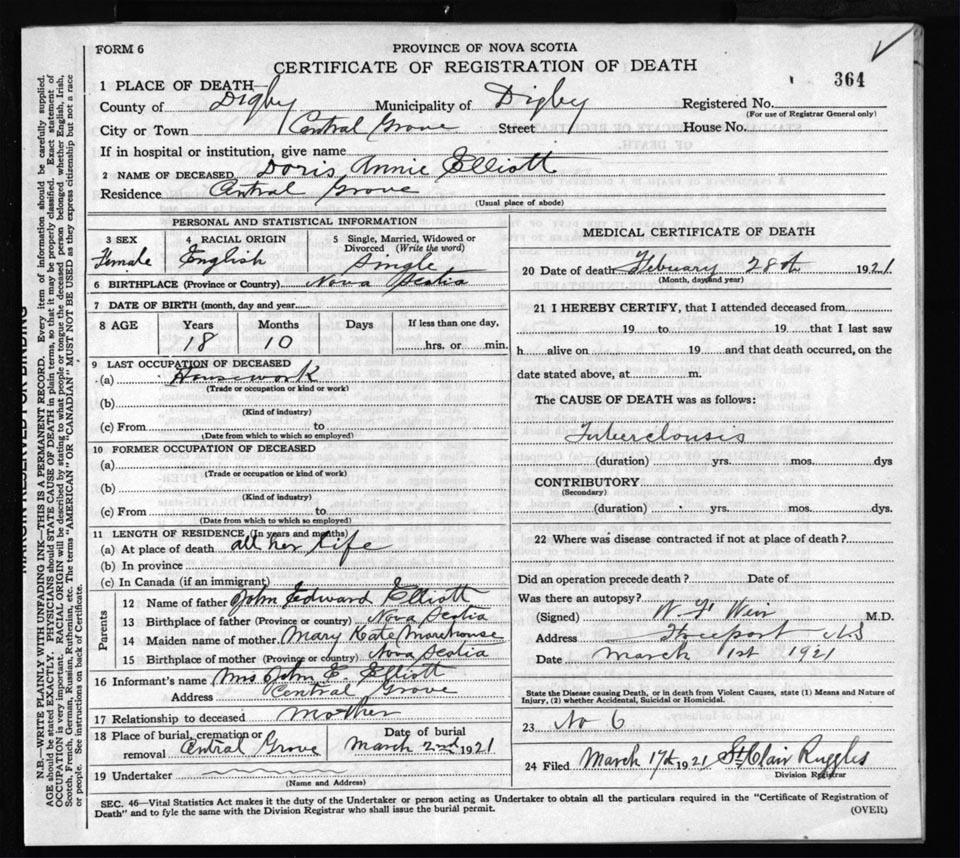 FORM 6
PROVINCE OF NOVA SCOTIA
CERTIFICATE OF REGISTRATION OF DEATH
364
1 PLACE OF DEATH
County of Digby Municipality of Digby Registered No.
(For use of Registrar General only)
City or Town Central Grove Street House No.
If in hospital or institution, give name
2 NAME OF DECEASED Doris Annie Elliott
Residence Central Grove
(Usual place of abode)
PERSONAL AND STATISTICAL INFORMATION
3 SEX 4 RACIAL ORIGIN 5 Single, Married, Widowed or Divorced (Write the word)
Female English Single
6 BIRTHPLACE (Province or Country) Nova Scotia
7 DATE OF BIRTH (month, day and year)
8 AGE Years Months Days If less than one day,
18 10 hrs. or min.
9 LAST OCCUPATION OF DECEASED
(a) Housework
(Trade or occupation or kind of work)
(b)
(Kind of industry)
(c) From to
(Date from which to which so employed)
10 FORMER OCCUPATION OF DECEASED
(a)
(Trade or occupation or kind of work)
(b)
(Kind of industry)
(c) From to
(Date from which to which so employed)
11 LENGTH OF RESIDENCE (In years and months)
(a) At place of death all her life
(b) In province
(c) In Canada (if an immigrant)
Parents
12 Name of father John Edward Elliott
13 Birthplace of father (Province or country) Nova Scotia
14 Maiden name of mother Mary Kate Morehouse
15 Birthplace of mother (Province or country) Nova Scotia
16 Informant's name Mrs John E. Elliott
Address Central Grove
17 Relationship to deceased Mother
18 Place of burial, cremation or removal Central Grove Date of burial March 2nd 1921
19 Undertaker
(Name and Address)
MEDICAL CERTIFICATE OF DEATH
20 Date of death Febuary 28th 1921
(Month, day and year)
21 I HEREBY CERTIFY, that I attended deceased from
19 to 19 that I last saw
h alive on 19 and that death occurred, on the
date stated above, at m.
The CAUSE OF DEATH was as follows:
Tuberclousis
(duration) yrs. mos. dys
CONTRIBUTORY
(Secondary)
(duration) yrs. mos. dys.
22 Where was disease contracted if not at place of death?
Did an operation precede death? Date of
Was there an autopsy?
(Signed) W. F. Weir M.D.
Address Freeport NS
Date March 1st 1921
State the Disease causing Death, or in death from Violent Causes, state (1) Means and Nature of
Injury, (2) whether Accidental, Suicidal or Homicidal.
23 No 6
24 Filed March 17th 1921 St. Clair Ruggles
Division Registrar
SEC. 46—Vital Statistics Act makes it the duty of the Undertaker or person acting as Undertaker to obtain all the particulars required in the "Certificate of Registration of
Death" and to fyle the same with the Division Registrar who shall issue the burial permit.
(OVER)
MARGIN RESERVED FOR BINDING
N.B.—WRITE PLAINLY WITH UNFADING INK—THIS IS A PERMANENT RECORD. Every item of information should be carefully supplied.
AGE should be stated EXACTLY. PHYSICIANS should STATE CAUSE OF DEATH in plain terms, so that it may be properly classified. Exact statement of
OCCUPATION is very important. RACIAL ORIGIN will be described by stating to what people or tongue the deceased person belonged whether English, Irish,
Scotch, French, German, Russian, Ruthenian, etc. The terms "AMERICAN" OR "CANADIAN" MUST NOT BE USED as they express citizenship but not a race
or people. See instructions on back of Certificate.